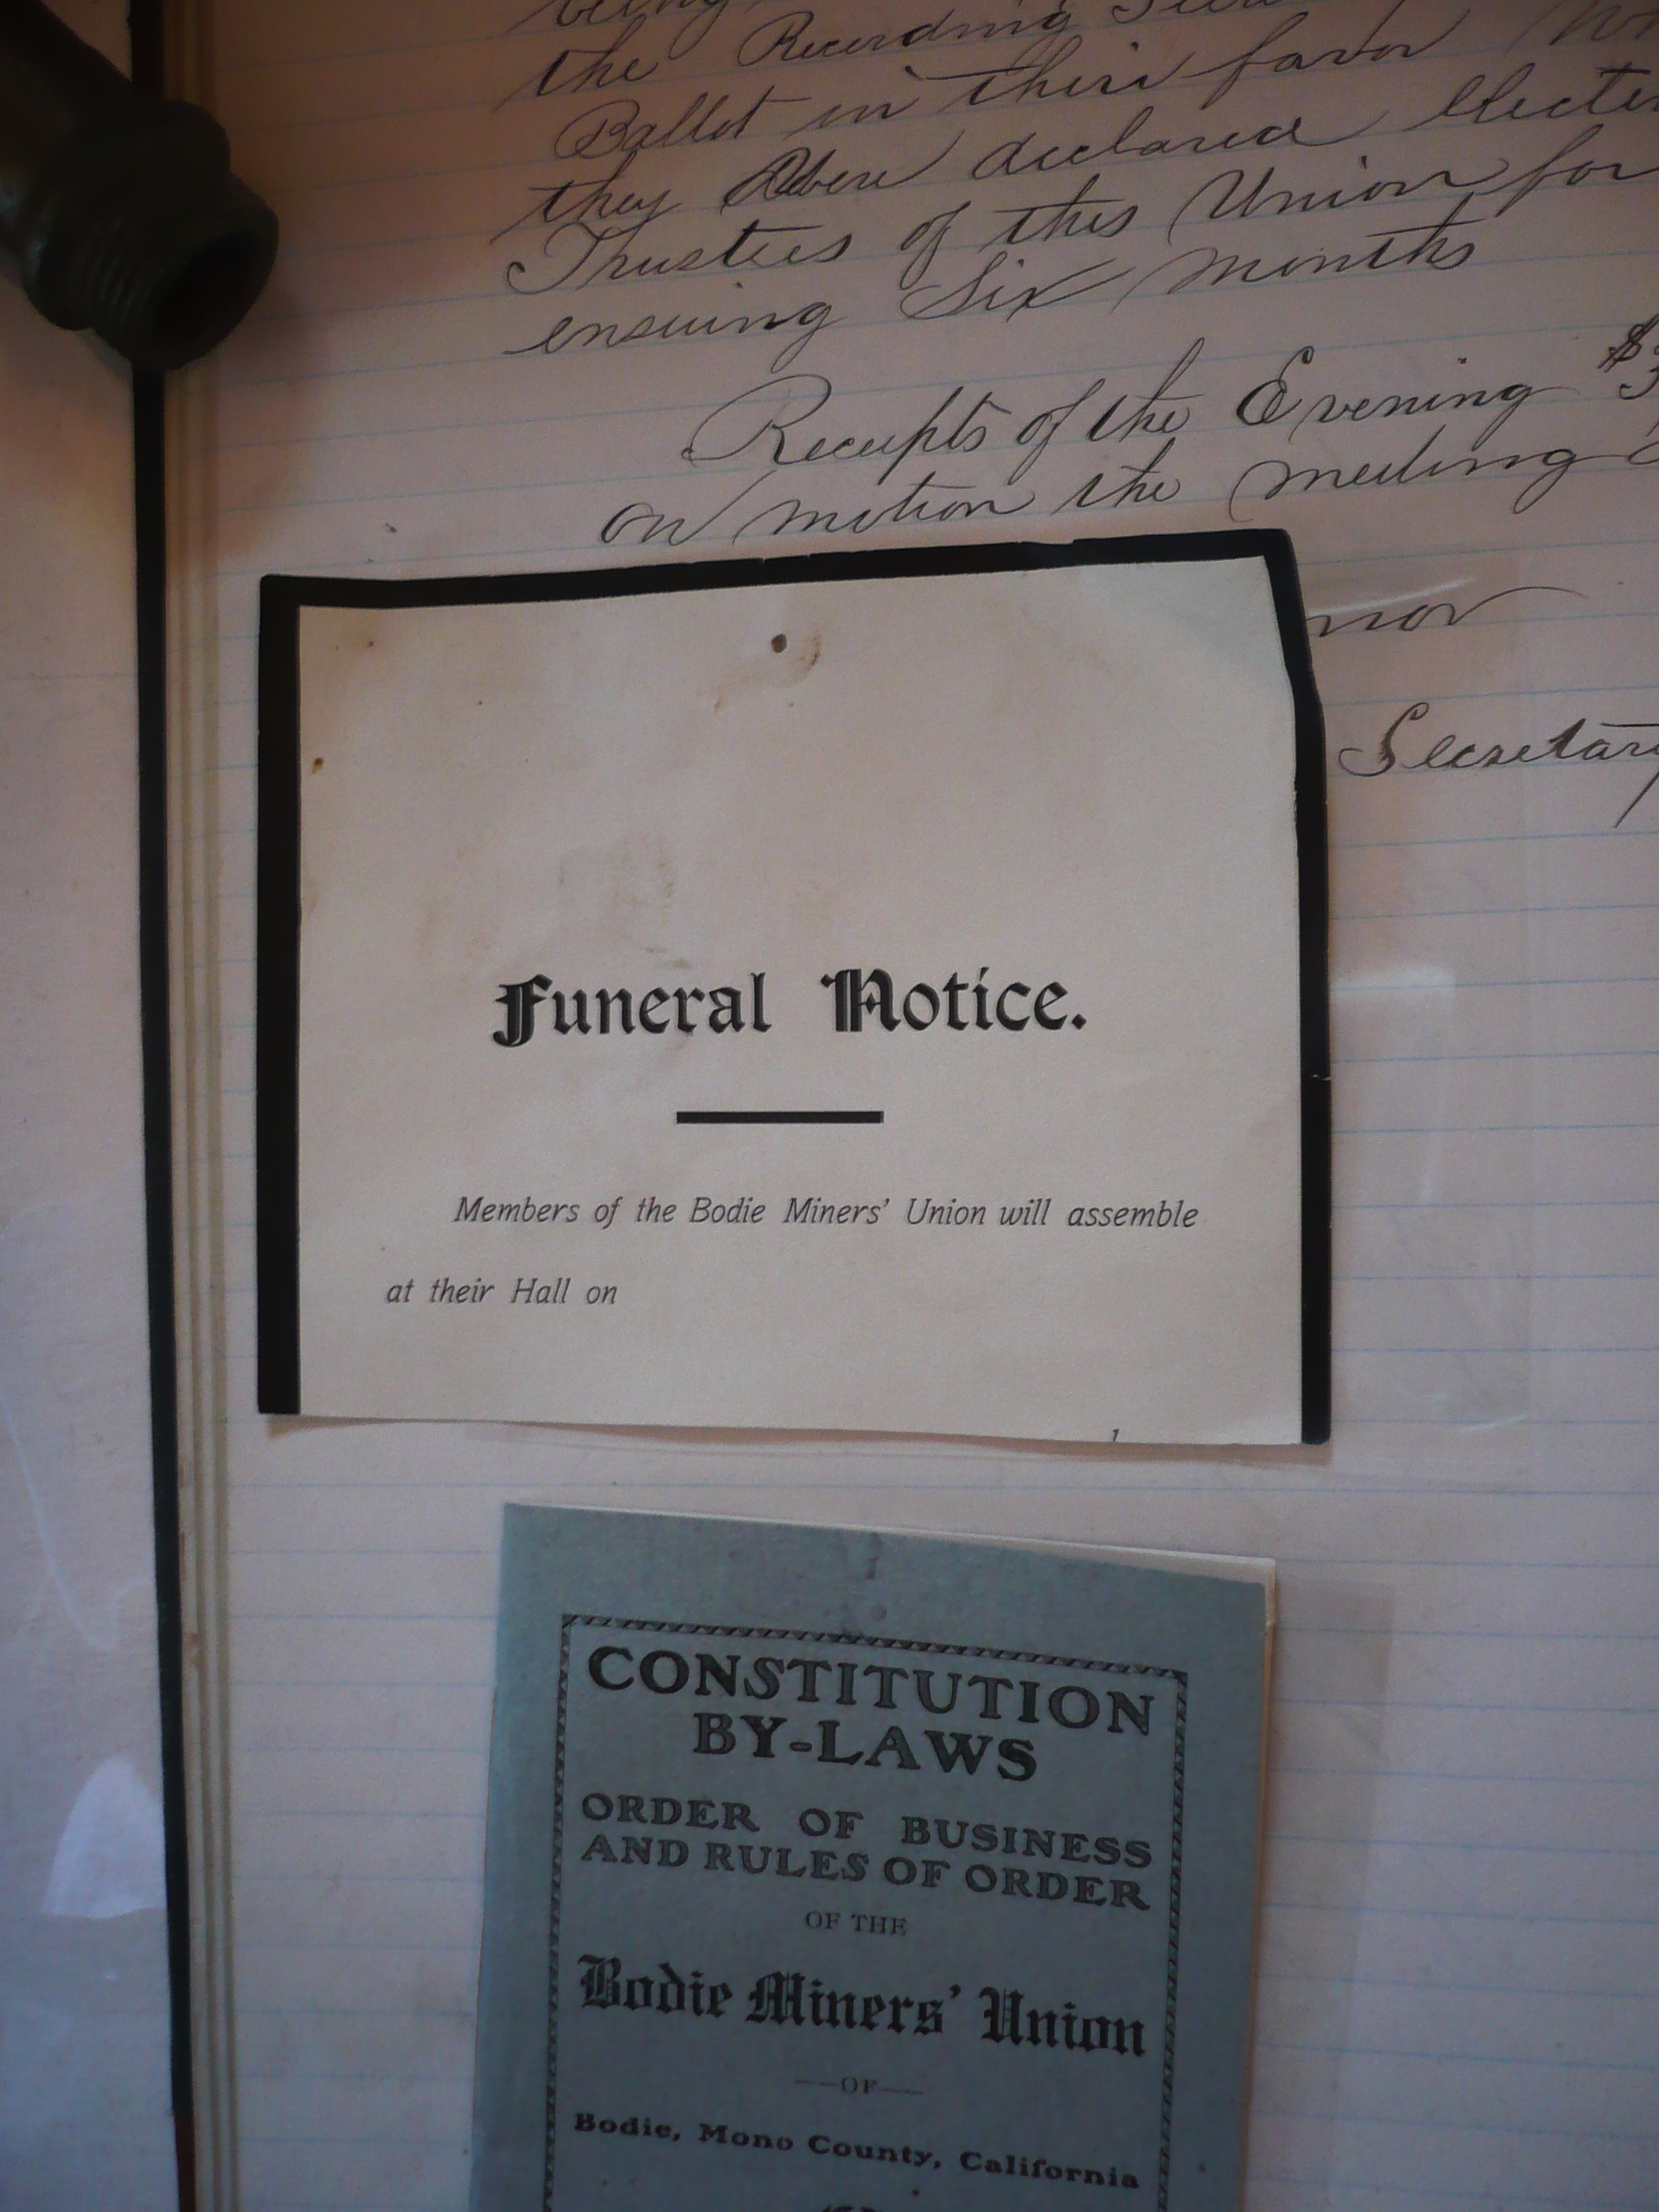 being
the Recording
Ballot in their favor
they Were declared Elected
Trustees of this Union for
ensuing Six months
Receipts of the Evening $3
on motion the meeting
nor
Secretary
Funeral Notice.
Members of the Bodie Miners' Union will assemble
at their Hall on
CONSTITUTION
BY-LAWS
ORDER OF BUSINESS
AND RULES OF ORDER
OF THE
Bodie Miners' Union
—OF—
Bodie, Mono County, California